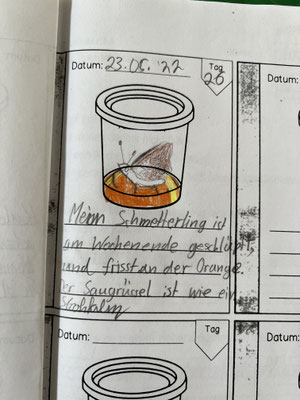 Datum: 23.05.'22
Tag
26
Mein Schmetterling ist
am Wochenende geschlüpft
und frisst an der Orange.
Der Saugrüssel ist wie ein
Strohhalm
Datum:
Tag
Da
Da